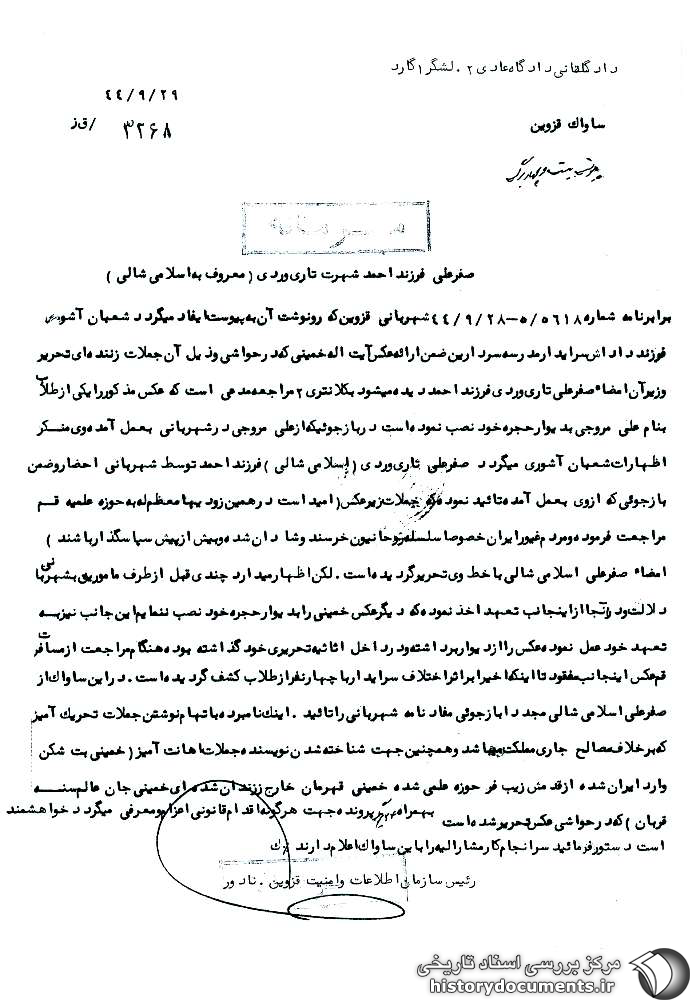 دادگاه عادی ۲ . لشگر ۱ گارد
۴۴/۹/۲۹
ساواك قزوین
۳۲۶۸ /ق ز
محرمانه
صفرعلی فرزند احمد شهرت تاری وردی ( معروف به اسلامی شالی )
برابر نامه شماره ۵/۵۶۱۸–۴۴/۹/۲۸ شهربانی قزوین که رونوشت آن به پیوست ایفاد میگردد شعبان آشوری
فرزند داداش سرایدار مدرسه سردارین ضمن ارائه عکس آیت اله خمینی که در حواشی و ذیل آن جملات زننده ای تحریر
و زیر آن امضاء صفرعلی تاری وردی فرزند احمد دیده میشود بکلانتری ۲ مراجعه مدعی است که عکس مذکور را یکی از طلاب
بنام علی مروجی بدیوار حجره خود نصب نموده است در بازجوئیکه از علی مروجی در شهربانی بعمل آمده وی منکر
اظهارات شعبان آشوری میگردد صفرعلی تاری وردی ( اسلامی شالی ) فرزند احمد توسط شهربانی احضار و ضمن
بازجوئی که از وی بعمل آمده تائید نموده که جملات زیر عکس ( امید است در همین زودیها معظم له به حوزه علمیه قم
مراجعت فرموده و مردم غیور ایران خصوصا سلسله روحانیون خرسند و شادان شده و بیش از پیش سپاسگذار باشند )
امضاء صفرعلی اسلامی شالی با خط وی تحریر گردیده است . لکن اظهار میدارد چندی قبل از طرف ماموریق بشهربانی
دلالت و در آنجا از اینجانب تعهد اخذ نموده که دیگر عکس خمینی را بدیوار حجره خود نصب ننمایم این جانب نیز به
تعهد خود عمل نموده عکس را از دیوار برداشته و در داخل اثاثیه تحریری خود گذاشته بوده هنگام مراجعت از مسافرت
قم عکس اینجانب مفقود تا اینکه اخیرا بر اثر اختلاف سرایدار با چهار نفر از طلاب کشف گردیده است . در این ساواك از
صفرعلی اسلامی شالی مجددا بازجوئی مفاد نامه شهربانی را تائید . اینك نامبرده باتهام نوشتن جملات تحریك آمیز
که بر خلاف مصالح جاری مملکت میباشد و همچنین جهت شناخته شدن نویسنده جملات اهانت آمیز ( خمینی بت شکن
وارد ایران شده از قدمش زیب فر حوزه علمی شده خمینی قهرمان خارج ززندان شده ای خمینی جان عالم بسته
قربان ) که در حواشی عکس تحریر شده است بهمراه پرونده جهت هرگونه اقدام قانونی اعزام و معرفی میگردد خواهشمند
است دستور فرمائید سرانجام کار مشارالیه را باین ساواك اعلام دارند
رئیس سازمان اطلاعات و امنیت قزوین . نادور
مرکز بررسی اسناد تاریخی
historydocuments.ir